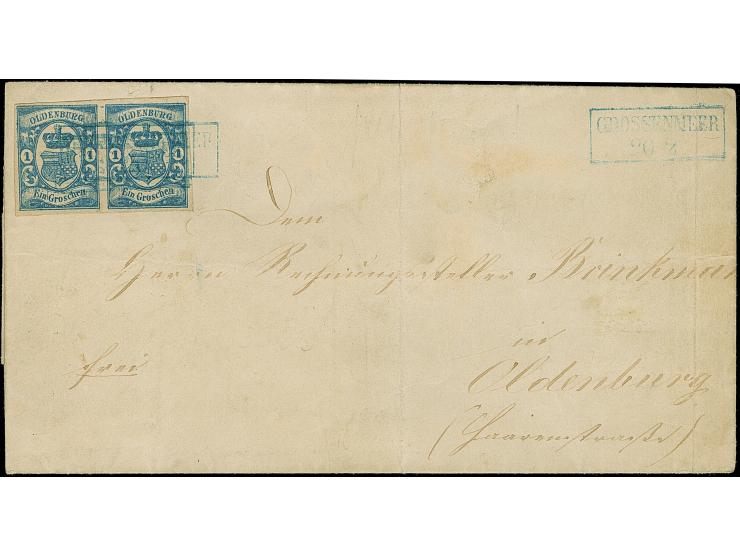 OLDENBURG OLDENBURG
1 1 1 1
Ein Groschen Ein Groschen
GROSSENMEER
Dem
Herrn Rechnungssteller Brinkman
in
frei
Oldenburg
(Haarenstraße)